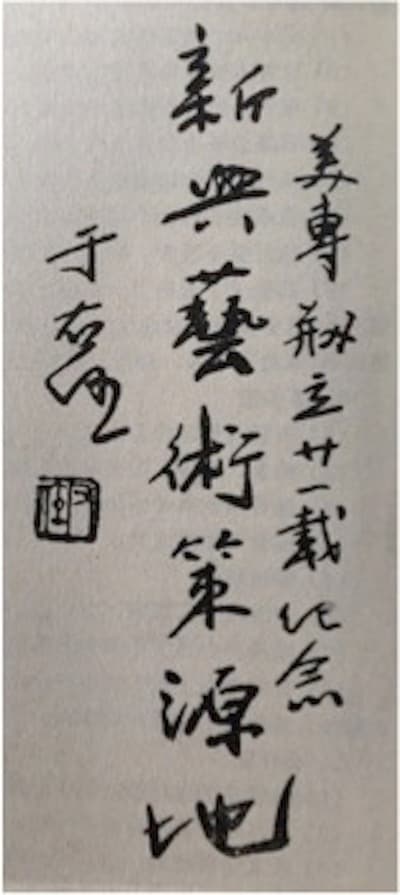 美專剏立廿一載纪念
新興藝術策源地
于右任